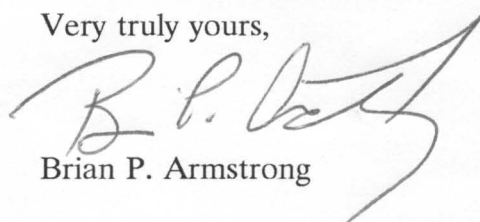 Very truly yours,
B P.
Brian P. Armstrong